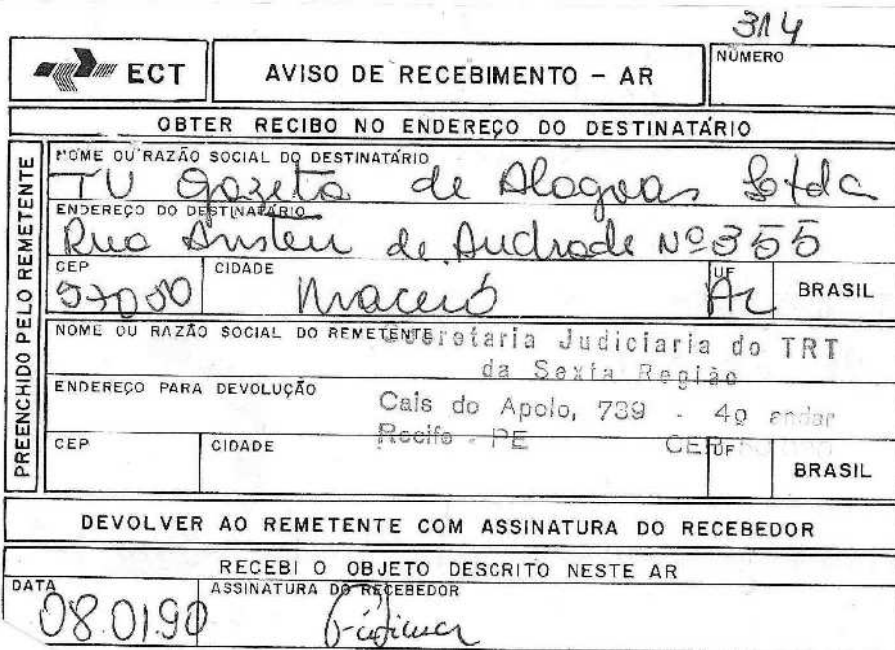 314
ECT
AVISO DE RECEBIMENTO - AR
NÚMERO
OBTER RECIBO NO ENDEREÇO DO DESTINATÁRIO
PREENCHIDO PELO REMETENTE
NOME OU RAZÃO SOCIAL DO DESTINATÁRIO
TV Gazeta de Alagoas Ltda
ENDEREÇO DO DESTINATÁRIO
Rua Aristeu de Andrade Nº 355
CEP CIDADE UF
57050 Maceió AL BRASIL
NOME OU RAZÃO SOCIAL DO REMETENTE
Secretaria Judiciaria do TRT
da Sexta Região
ENDEREÇO PARA DEVOLUÇÃO
Cais do Apolo, 739 - 4º andar
Recife - PE CEP
CEP CIDADE UF
BRASIL
DEVOLVER AO REMETENTE COM ASSINATURA DO RECEBEDOR
RECEBI O OBJETO DESCRITO NESTE AR
DATA ASSINATURA DO RECEBEDOR
08.01.90 Fátima